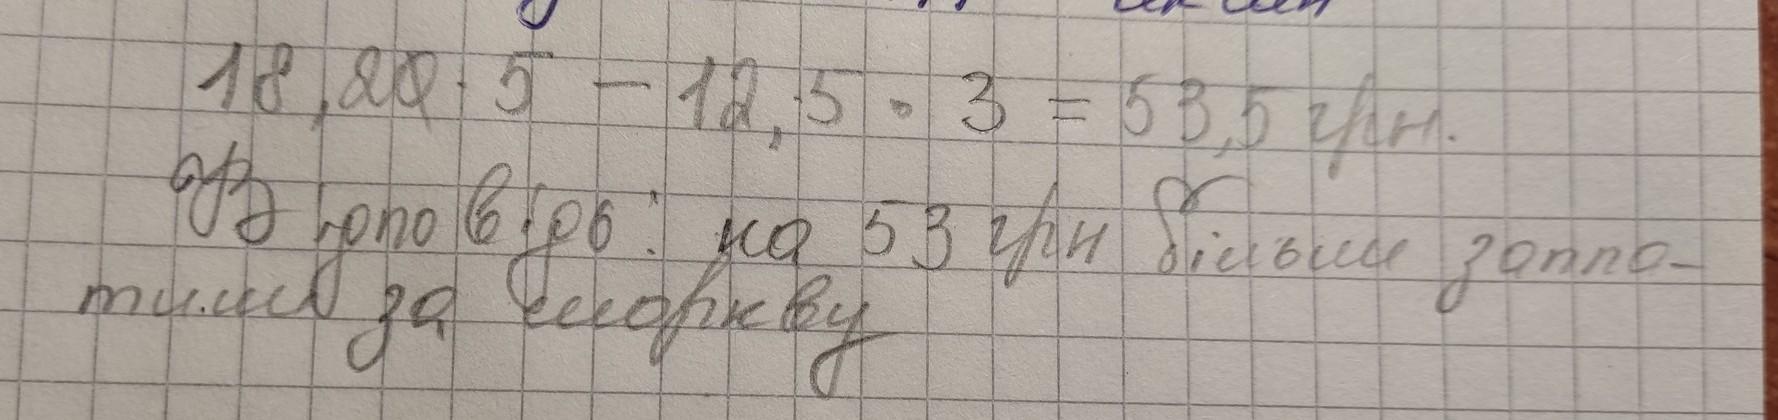 18,20 · 5 – 12,5 · 3 = 53,5 грн.
Відповідь: на 53 грн більше запла-
тили за моркву